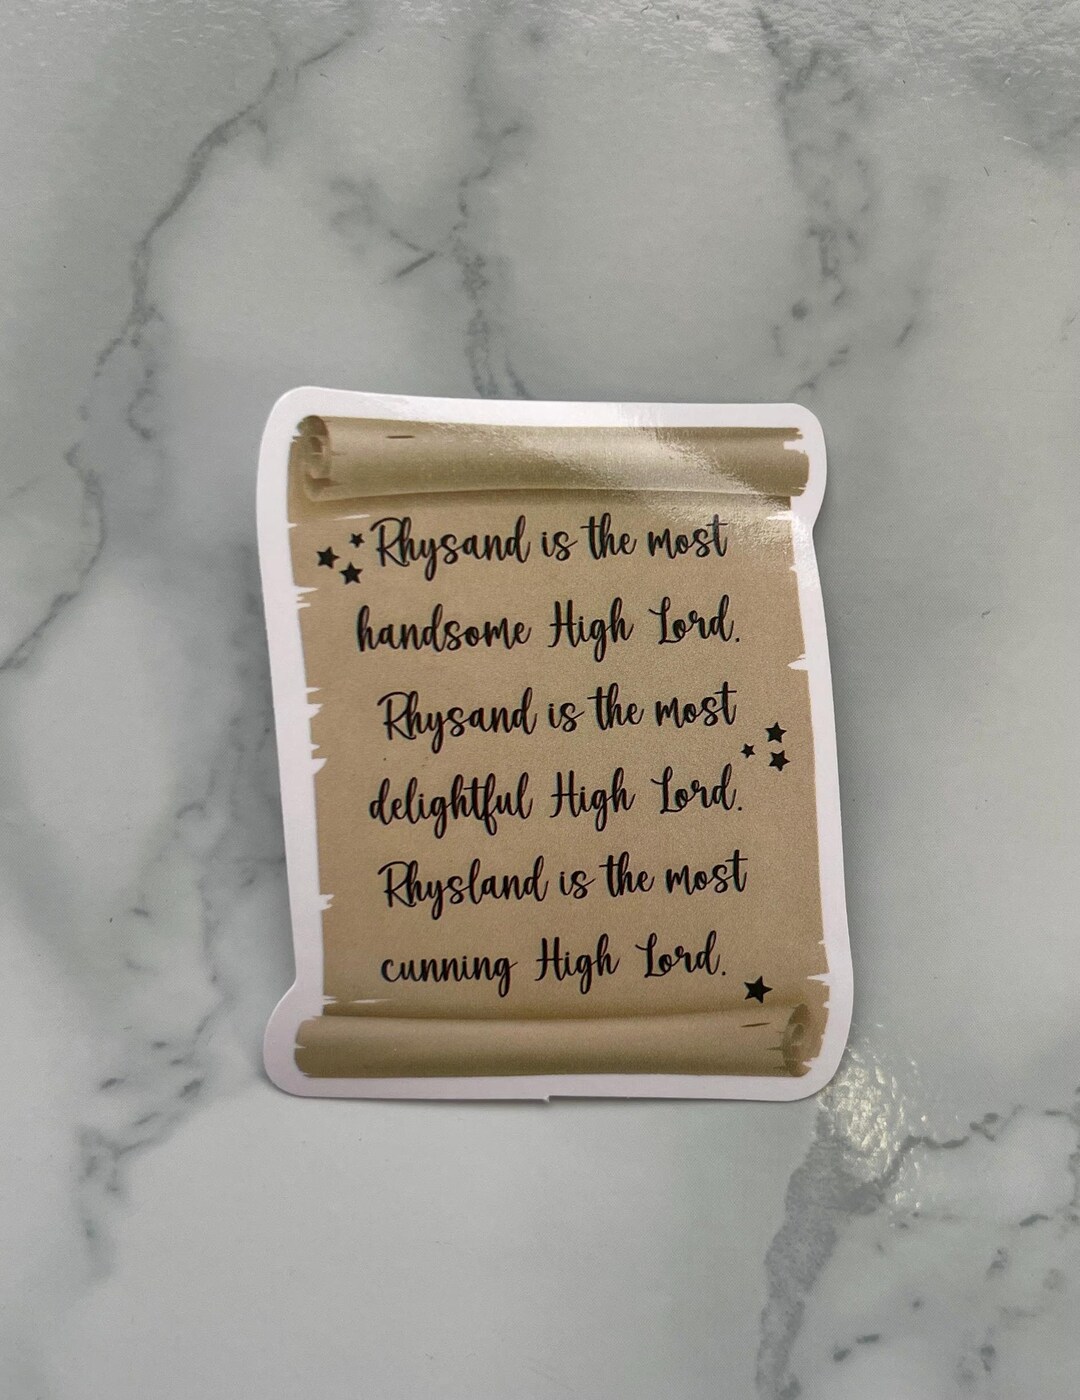 Rhysand is the most
handsome High Lord.
Rhysand is the most
delightful High Lord.
Rhysland is the most
cunning High Lord.